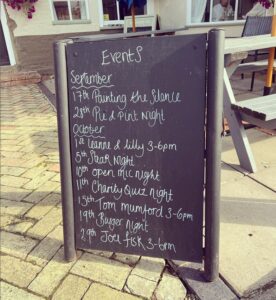 Events
September
17th Painting the Silence
28th Pie & Pint Night
October
1st Leanne & Lilly 3-6pm
5th Steak Night
10th open mic Night
11th Charity Quiz night
15th Tom Mumford 3-6pm
19th Burger Night
29th Joel Fisk 3-6pm